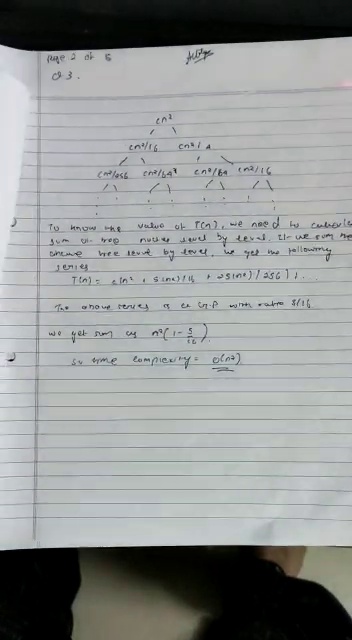 Page 2 of 5
Q3.
cn²
cn²/16 cn²/4
cn²/256 cn²/64 cn²/64 cn²/16
To know the value of T(n), we need to calculate
sum of tree nodes level by level. If we sum the
above tree level by level, we get the following
series
T(n) = c(n² + 5(n²)/16 + 25(n²)/256) + .
The above series is a G.P with ratio 5/16
we get sum as n²(1 - 5/16)
so time complexity = O(n²)